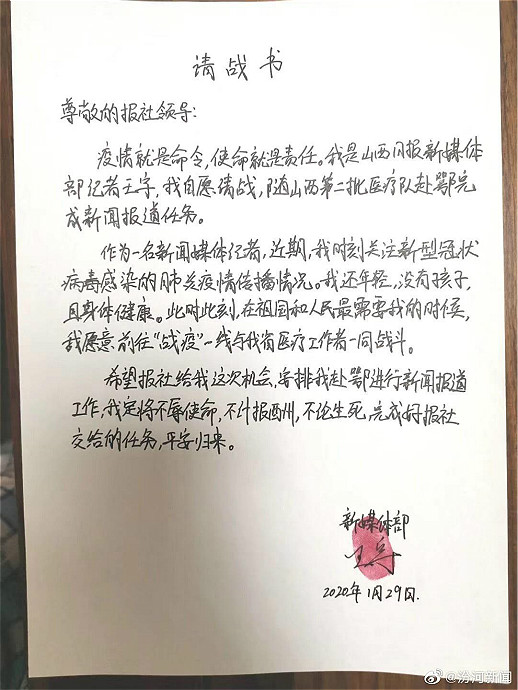 请战书
尊敬的报社领导:
疫情就是命令,使命就是责任。我是山西日报新媒体
部记者王宇,我自愿请战,随山西第二批医疗队赴鄂完
成新闻报道任务。
作为一名新闻媒体记者,近期,我时刻关注新型冠状
病毒感染的肺炎疫情传播情况。我还年轻,没有孩子,
且身体健康。此时此刻,在祖国和人民最需要我的时候,
我愿意前往“战疫”一线与我省医疗工作者一同战斗。
希望报社给我这次机会,安排我赴鄂进行新闻报道
工作,我定将不辱使命,不计报酬,不论生死,完成好报社
交给的任务,平安归来。
新媒体部
王宇
2020年1月29日.
@汾河新闻